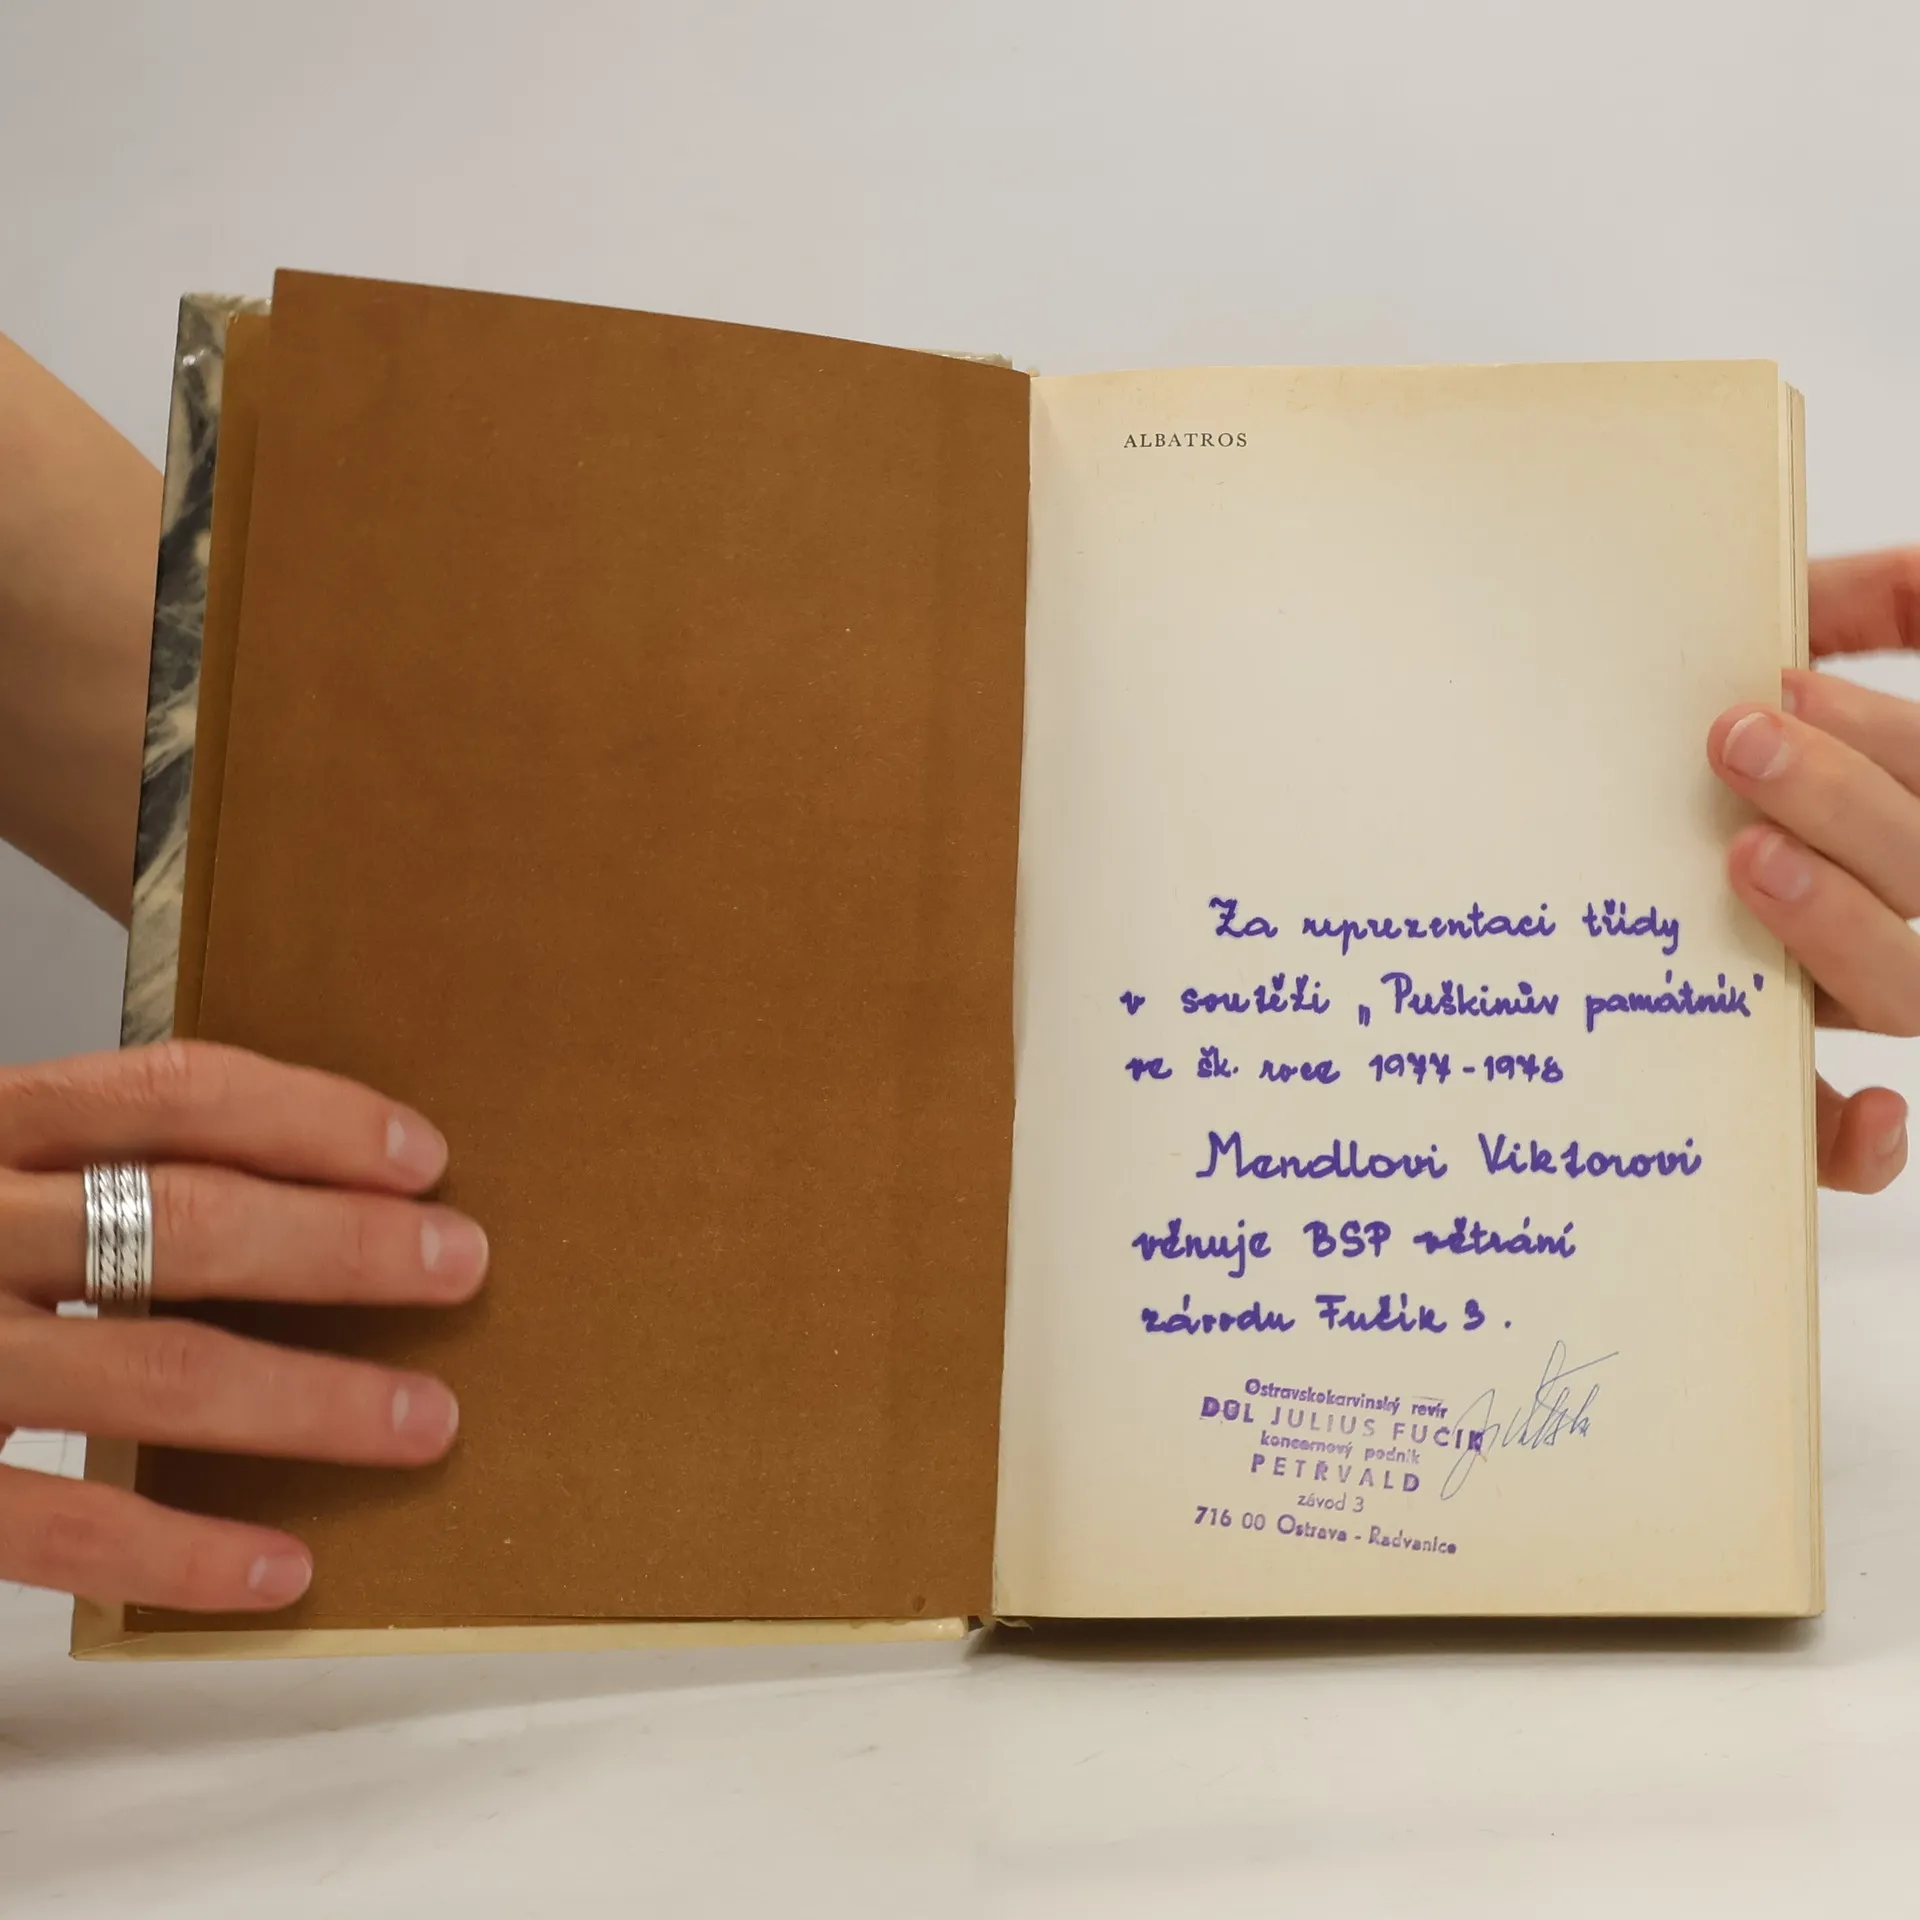 ALBATROS
Za reprezentaci třídy
v soutěži „Puškinův památník"
ve šk. roce 1977-1978
Mendlovi Viktorovi
věnuje BSP větrání
závodu Fučík 3.
Ostravskokarvinský revír
DŮL JULIUS FUČÍK
koncernový podnik
PETŘVALD
závod 3
716 00 Ostrava - Radvanice